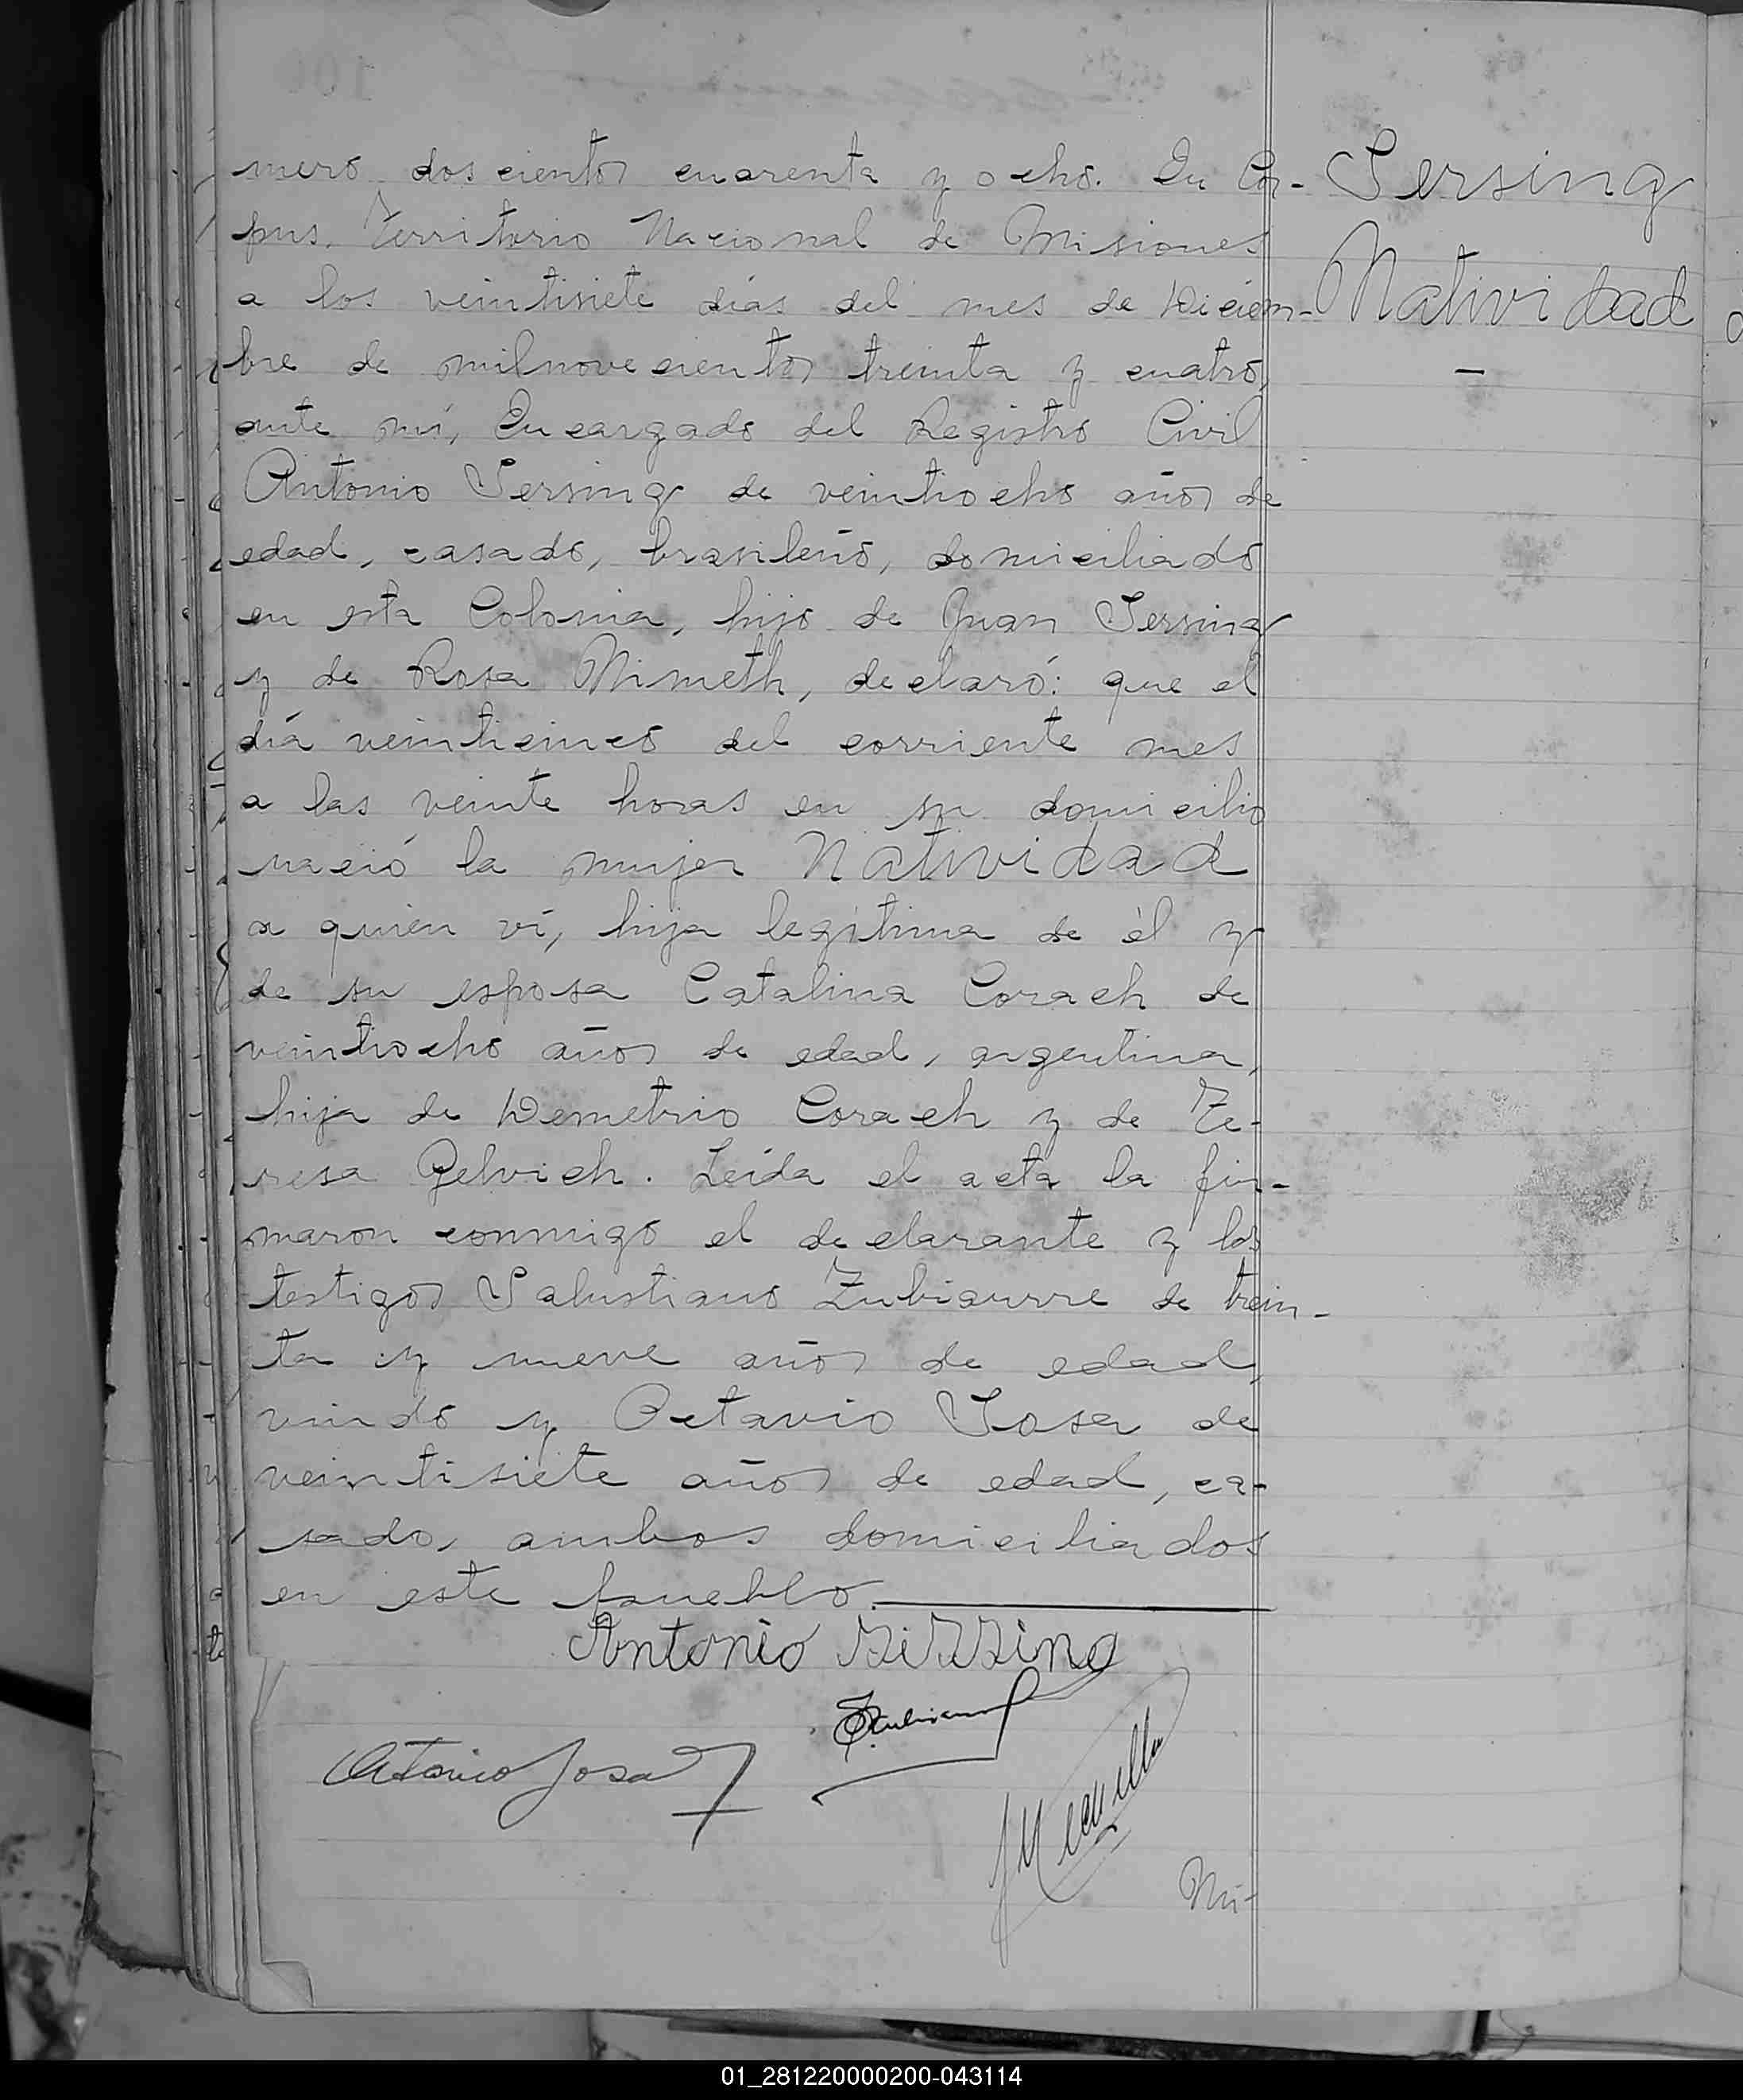 mero doscientos cuarenta y ocho. En Cor-
Sersing
pus, Territorio Nacional de Misiones
Natividad
a los veintisiete días del mes de Diciem-
bre de milnovecientos treinta y cuatro,
ante mí, Encargado del Registro Civil
Antonio Sersing de veintiocho años de
edad, casado, brasileño, domiciliado
en esta Colonia, hijo de Juan Sersing
y de Rosa Nimeth, declaró: que el
día veinticinco del corriente mes
a las veinte horas en su domicilio
nació la mujer Natividad
a quien ví, hija legítima de él y
de su esposa Catalina Corach de
veintiocho años de edad, argentina,
hija de Demetrio Corach y de Te-
resa Gelvich. Leída el acta la fir-
maron conmigo el declarante y los
testigos Salustiano Zubiaurre de trein-
ta y nueve años de edad,
viudo y Octavio Sosa de
veintisiete años de edad, ca-
sado, ambos domiciliados
en este pueblo.
Antonio
Octavio Sosa
Nú-
01_281220000200-043114